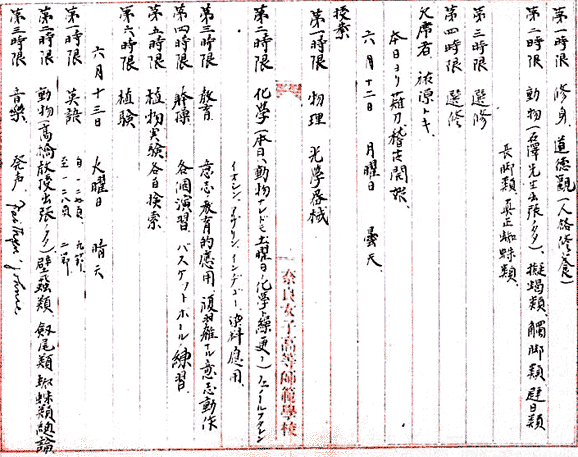 第一時限 修身 道徳観(人格修養)
第二時限 動物(石澤先生出張ノタメ)、擬蝎類、觸脚類、避日類
長脚類 真正蜘蛛類
第三時限 選修
第四時限 選修
欠席者 トキ
本日ヨリ薙刀稽古開始
六月十二日 月曜日 曇天
授業
第一時限 物理 光學器械
第二時限 化學(本日、動物ナレドモ土曜日ノ化學ト繰更ヘ)
染料應用
第三時限 教育 意志 教育的應用 複雑ナル意志動作
第四時限 体操 各個演習 バスケットボール練習
第五時限 植物実験各自検索
第六時限 植験
六月十三日 火曜日 晴天
第一時限 英語 自一二七頁 九節 至一二八頁 二節
第二時限 動物(高橋教授出張ノタメ)壁蝨類 剣尾類 蜘蛛類総論
第三時限 音樂 発声
奈良女子高等師範學校